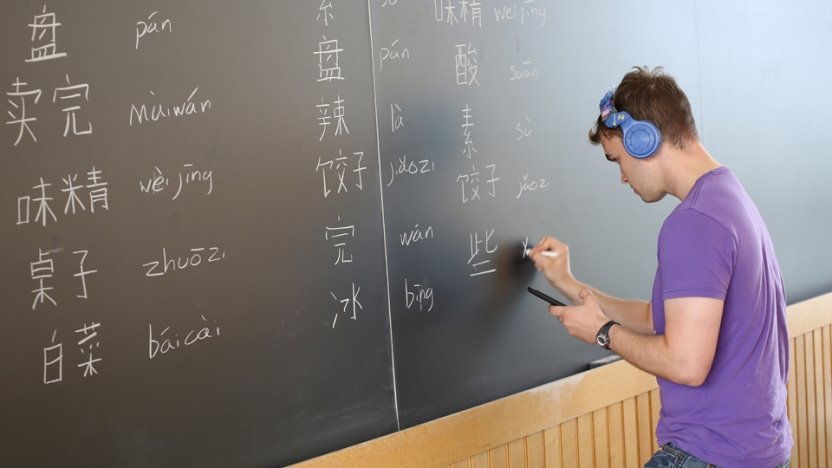 盘 pán
卖完 Màiwán
味精 wèijīng
桌子 zhuōzi
白菜 báicài
盘 pán
辣 là
饺子 jiǎozi
完 wán
冰 bīng
味精 weijīng
酸 suān
素 sù
饺子 jiǎoz
些